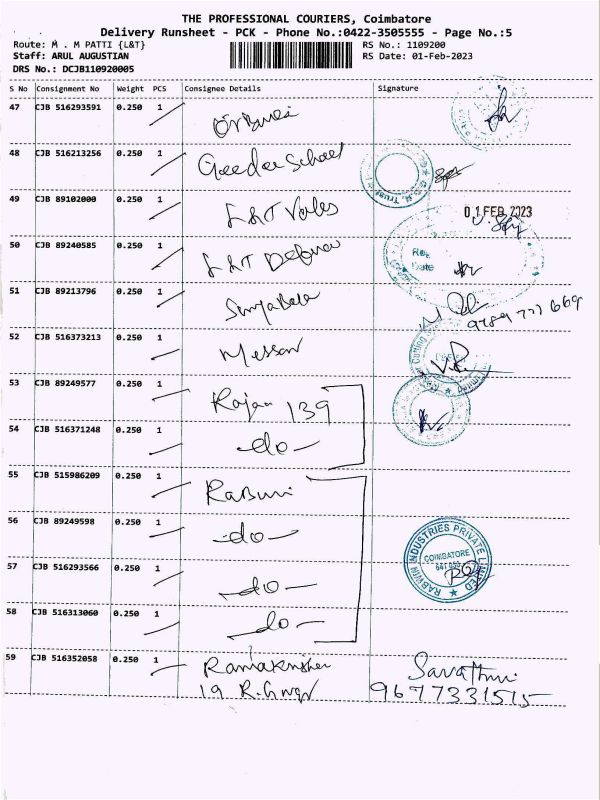 THE PROFESSIONAL COURIERS, Coimbatore
Delivery Runsheet - PCK - Phone No.:0422-3505555 - Page No.:5
Route: M . M PATTI {L&T} RS No.: 1109200
Staff: ARUL AUGUSTIAN RS Date: 01-Feb-2023
DRS No.: DCJB110920005
S No Consignment No Weight PCS Consignee Details Signature
47 CJB 516293591 0.250 1
48 CJB 516213256 0.250 1 School
49 CJB 89102000 0.250 1 L&T Vales 01 FEB 2023
50 CJB 89240585 0.250 1 L&T Defence
Date
51 CJB 89213796 0.250 1 SuryaBala
52 CJB 516373213 0.250 1 Messer
53 CJB 89249577 0.250 1 Rajan 139
54 CJB 516371248 0.250 1 -do-
55 CJB 515986209 0.250 1 Rabwin
56 CJB 89249598 0.250 1 -do-
RABWIN INDUSTRIES PRIVATE LIMITED
COIMBATORE
57 CJB 516293566 0.250 1 -do-
58 CJB 516313060 0.250 1 -do-
59 CJB 516352058 0.250 1
19 9677331515